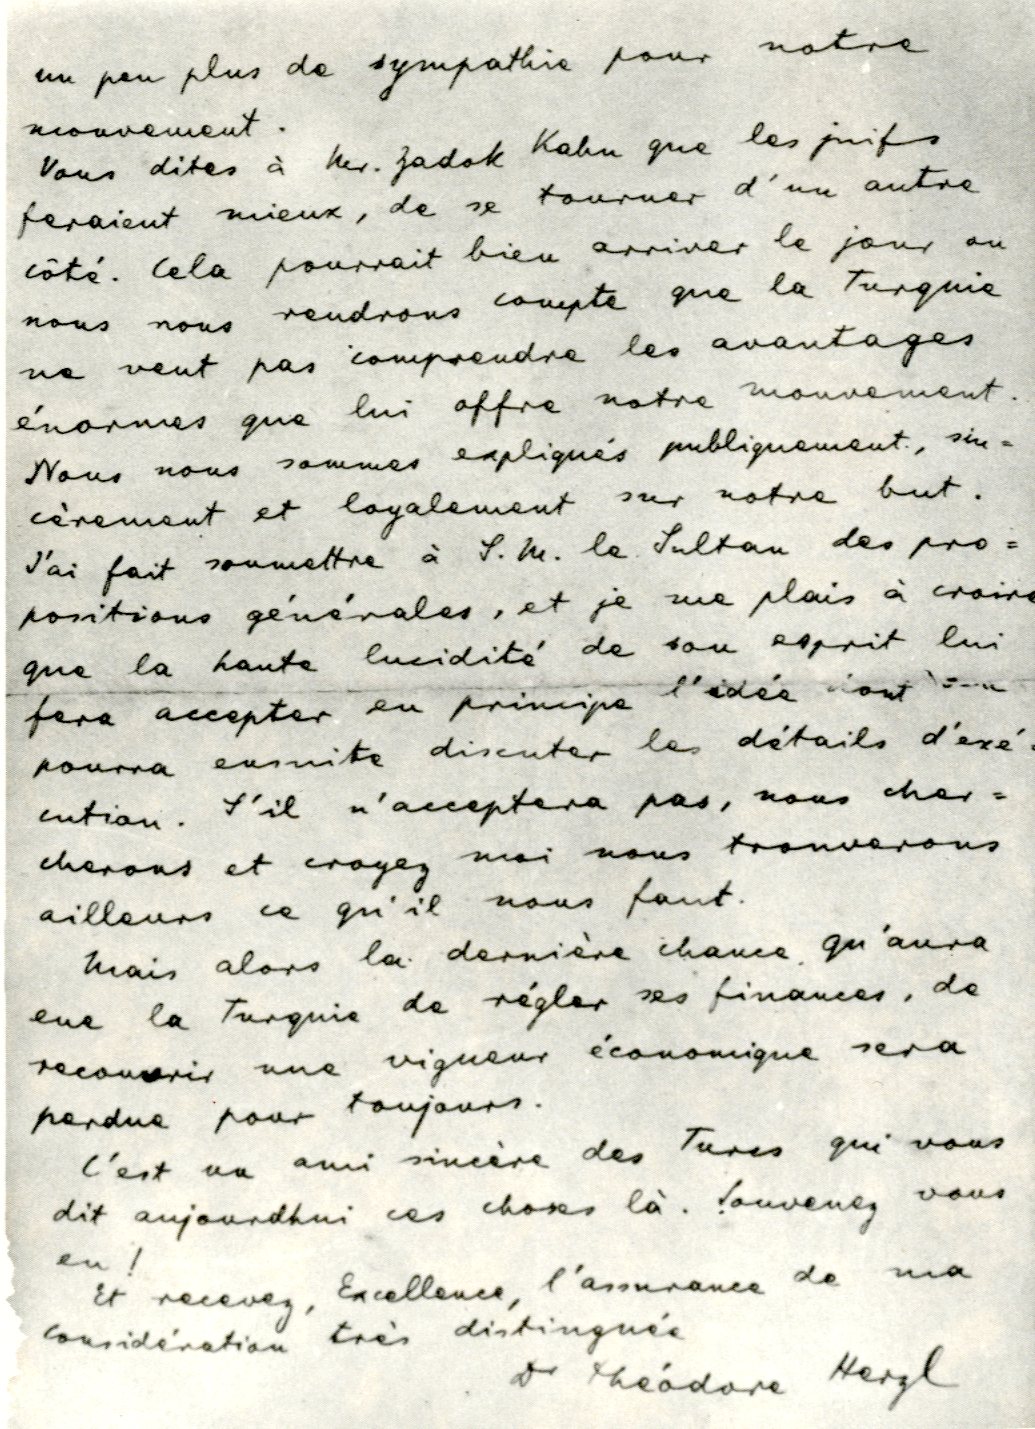 un peu plus de sympathie pour notre
mouvement.
Vous dites à Mr. Zadok Kahn que les juifs
feraient mieux, de se tourner d'un autre
côté. Cela pourrait bien arriver le jour ou
nous nous rendrons compte que la Turquie
ne veut pas comprendre les avantages
énormes que lui offre notre mouvement.
Nous nous sommes expliqués publiquement, sin=
cèrement et loyalement sur notre but.
J'ai fait soumettre à S. M. le Sultan des pro=
positions générales, et je me plais à croire
que la haute lucidité de son esprit lui
fera accepter en principe l'idée dont on
pourra ensuite discuter les détails d'exé=
cution. S'il n'acceptera pas, nous cher=
cherons et croyez moi nous trouverons
ailleurs ce qu'il nous faut.
Mais alors la dernière chance qu'aura
eue la Turquie de régler ses finances, de
recouvrir une vigueur économique sera
perdue pour toujours.
C'est un ami sincère des Turcs qui vous
dit aujourdhui ces choses là. Souvenez vous
en!
Et recevez, Excellence, l'assurance de ma
considération très distinguée
Dr Théodore Herzl